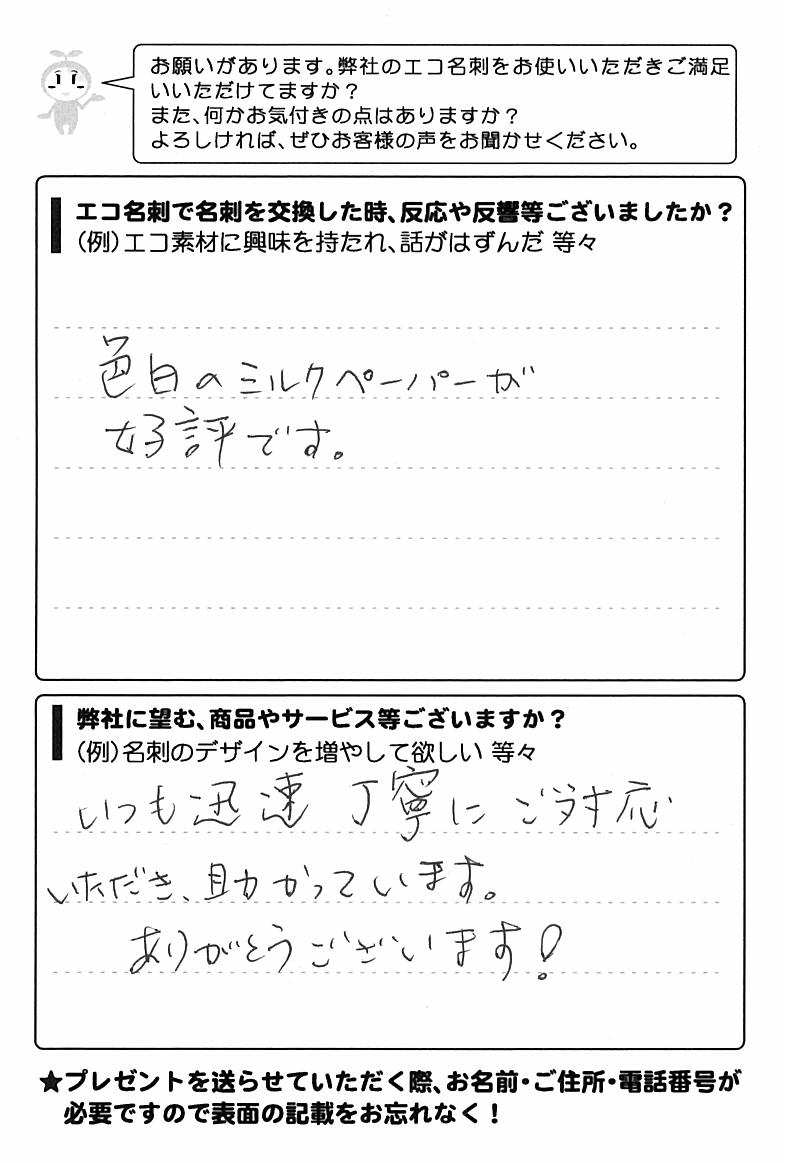 お願いがあります。弊社のエコ名刺をお使いいただきご満足
いいただけてますか？
また、何かお気付きの点はありますか？
よろしければ、ぜひお客様の声をお聞かせください。
エコ名刺で名刺を交換した時、反応や反響等ございましたか？
（例）エコ素材に興味を持たれ、話がはずんだ 等々
色白のミルクペーパーが
好評です。
弊社に望む、商品やサービス等ございますか？
（例）名刺のデザインを増やして欲しい 等々
いつも迅速 丁寧に ご対応
いただき、助かっています。
ありがとうございます！
★プレゼントを送らせていただく際、お名前・ご住所・電話番号が
必要ですので表面の記載をお忘れなく！